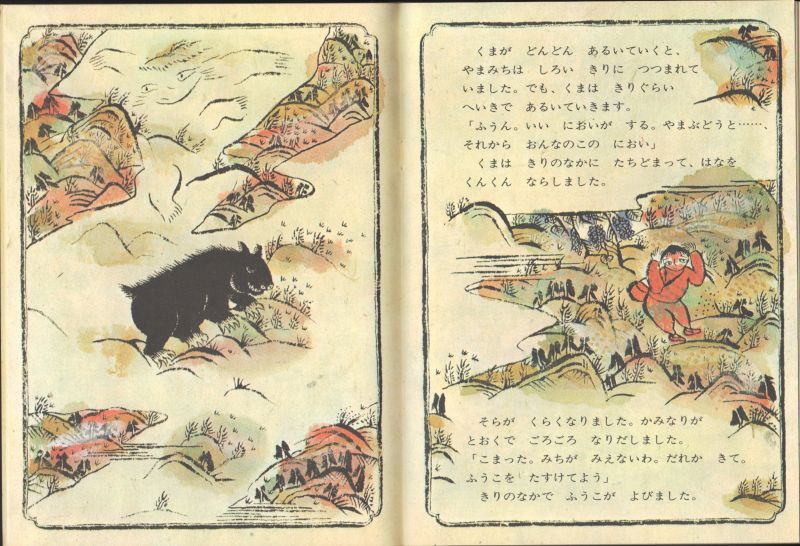 くまが　どんどん　あるいていくと、
やまみちは　しろい　きりに　つつまれて
いました。でも、くまは　きりぐらい
へいきで　あるいていきます。
「ふうん。いい　においが　する。やまぶどうと……、
それから　おんなのこの　におい」
くまは　きりのなかに　たちどまって、はなを
くんくん　ならしました。
そらが　くらくなりました。かみなりが
とおくで　ごろごろ　なりだしました。
「こまった。みちが　みえないわ。だれか　きて。
ふうこを　たすけてよう」
きりのなかで　ふうこが　よびました。